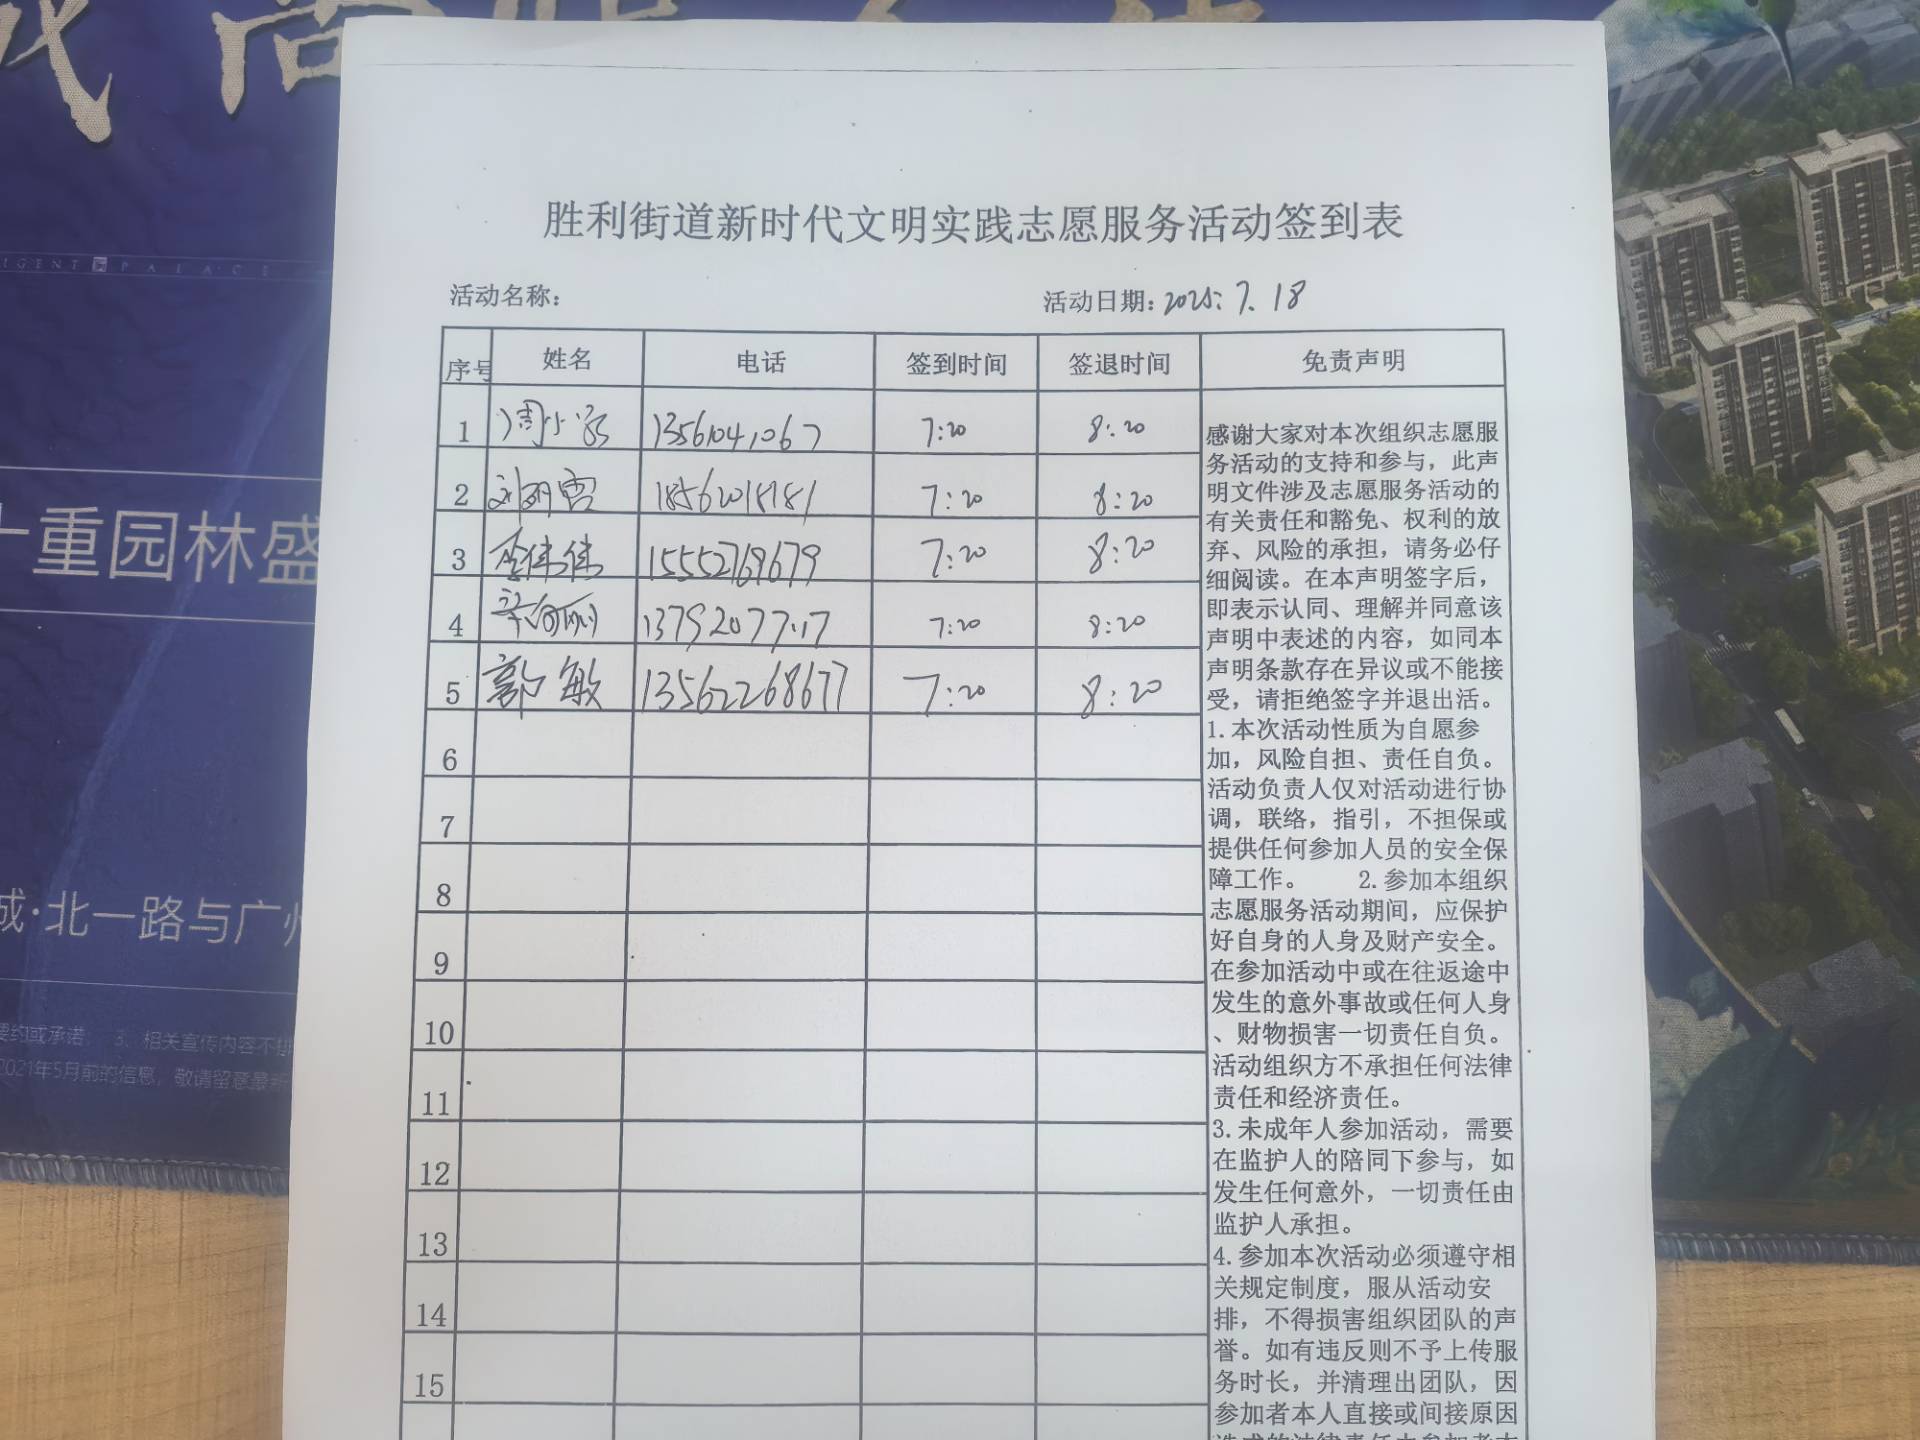 胜利街道新时代文明实践志愿服务活动签到表
活动名称：
活动日期：2025.7.18
序号 姓名 电话 签到时间 签退时间 免责声明
1 周小 7:20 8:20
2 刘明霞 18562018181 7:20 8:20
3 李伟伟 15552769679 7:20 8:20
4 7:20 8:20
5 郭敏 13562268677 7:20 8:20
6
7
8
9
10
11
12
13
14
15
感谢大家对本次组织志愿服
务活动的支持和参与，此声
明文件涉及志愿服务活动的
有关责任和豁免、权利的放
弃、风险的承担，请务必仔
细阅读。在本声明签字后，
即表示认同、理解并同意该
声明中表述的内容，如同本
声明条款存在异议或不能接
受，请拒绝签字并退出活。
1.本次活动性质为自愿参
加，风险自担、责任自负。
活动负责人仅对活动进行协
调，联络，指引，不担保或
提供任何参加人员的安全保
障工作。 2.参加本组织
志愿服务活动期间，应保护
好自身的人身及财产安全。
在参加活动中或在往返途中
发生的意外事故或任何人身
、财物损害一切责任自负。
活动组织方不承担任何法律
责任和经济责任。
3.未成年人参加活动，需要
在监护人的陪同下参与，如
发生任何意外，一切责任由
监护人承担。
4.参加本次活动必须遵守相
关规定制度，服从活动安
排，不得损害组织团队的声
誉。如有违反则不予上传服
务时长，并清理出团队，因
参加者本人直接或间接原因
IGENT PALACE
十重园林盛
城·北一路与广州
要约或承诺； 3、相关宣传内容不排
2021年5月前的信息，敬请留意最新